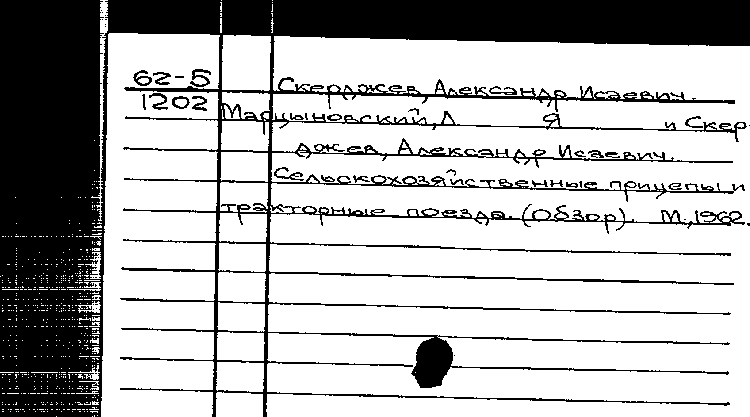 62-5 Скерджев, Александр Исаевич.
1202 Марцыновский, Л Я и Скер-
джев, Александр Исаевич.
Сельскохозяйственные прицепы и
тракторные поезда. (Обзор). М., 1962.